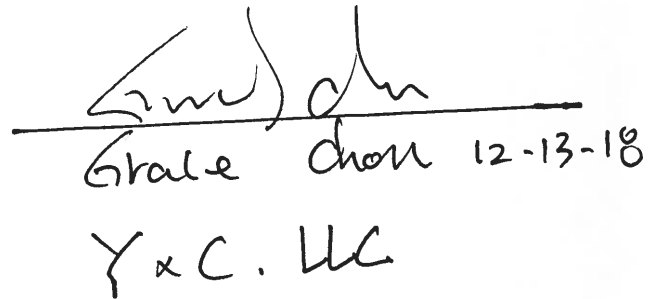 Grace Chon 12-13-18
Y & C. LLC